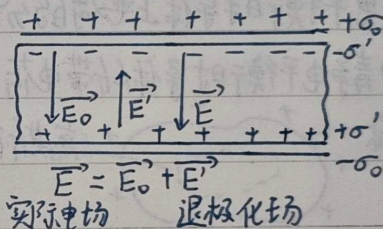 + + + + + + +σ₀
- - - - - - - -σ'
E₀ E' E
+ + + + + + +σ'
-σ₀
E = E₀ + E'
实际电场 退极化场